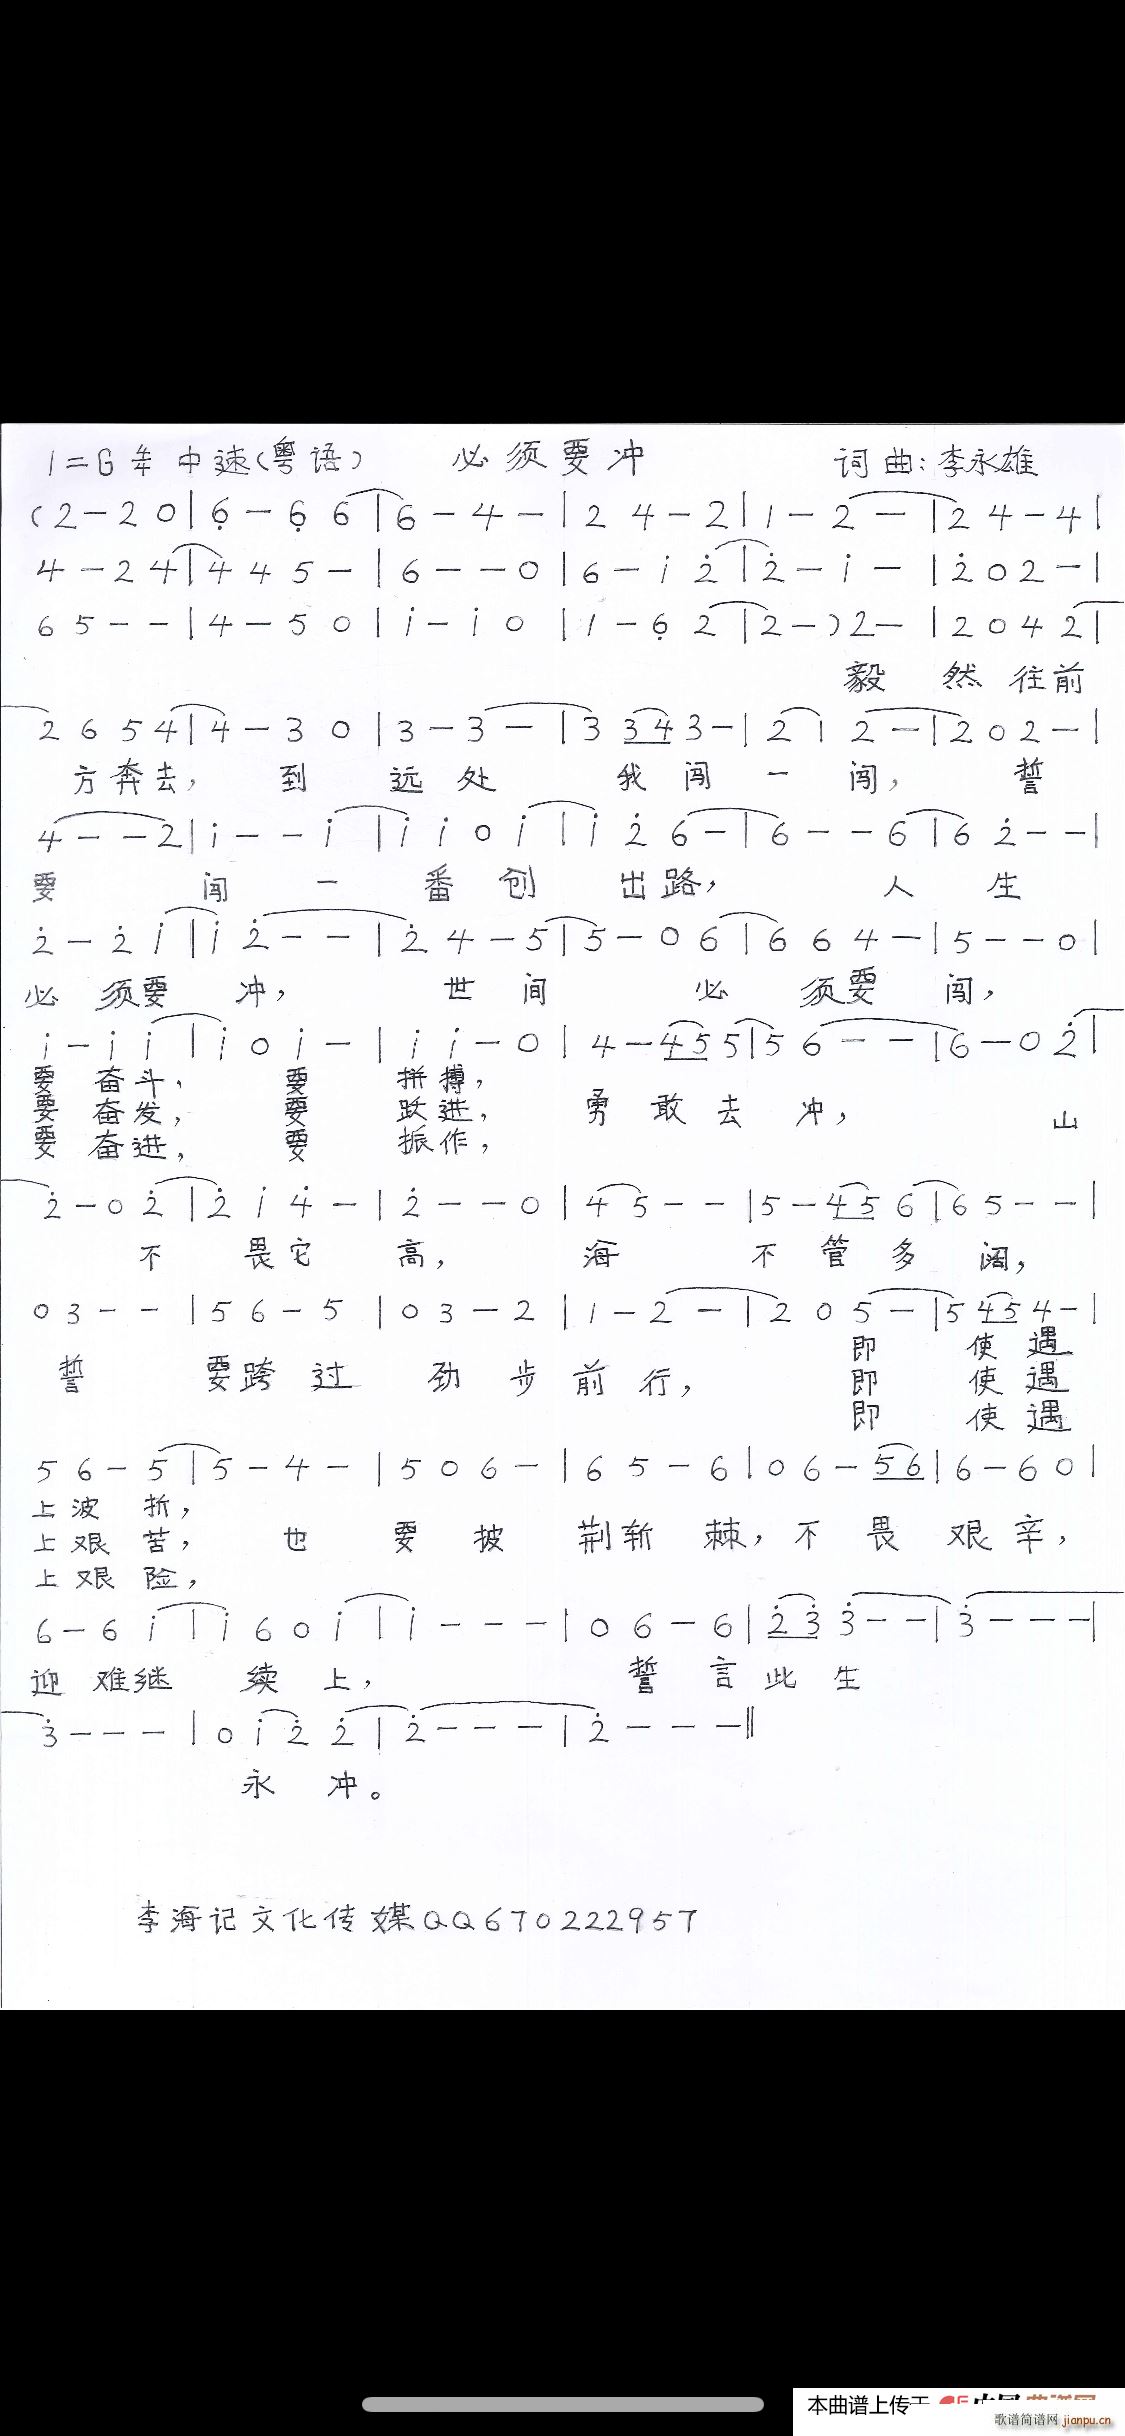 1=G 4/4 中速(粤语) 必须要冲 词曲:李永雄
(2-20|6̣-6̣6̣|6-4-|24-2|1-2-|24-4|
4-24|445-|6--0|6-1̇2̇|2̇-1̇-|2̇02-|
65--|4-50|1̇-1̇0|1-6̣2|2-)2-|2042|
毅然往前
2654|4-30|3-3-|3343-|212-|202-|
方奔去,到远处我闯一闯,誓
4--2|1̇--1̇|1̇1̇01̇|1̇2̇6-|6--6|62̇--|
要闯一番创出路,人生
2̇-2̇1̇|1̇2̇--|2̇4-5|5-06|664-|5--0|
必须要冲,世间必须要闯,
1̇-1̇1̇|1̇01̇-|1̇1̇-0|4-455|56--|6-02̇|
要奋斗,要拼搏,
要奋发,要跃进,勇敢去冲,山
要奋进,要振作,
2̇-02̇|2̇1̇4̇-|2̇--0|45--|5-456|65--|
不畏它高,海不管多阔,
03--|56-5|03-2|1-2-|205-|5454-|
即使遇
誓要跨过劲步前行,即使遇
即使遇
56-5|5-4-|506-|65-6|06-56|6-60|
上波折,
上艰苦,也要披荆斩棘,不畏艰辛,
上艰险,
6-61̇|1̇601̇|1̇---|06-6|2̇3̇3̇--|3̇---|
迎难继续上,誓言此生
3̇---|01̇2̇2̇|2̇---|2̇---‖
永冲。
李海记文化传媒QQ670222957
本曲谱上传于
歌谱简谱网 jianpu.cn